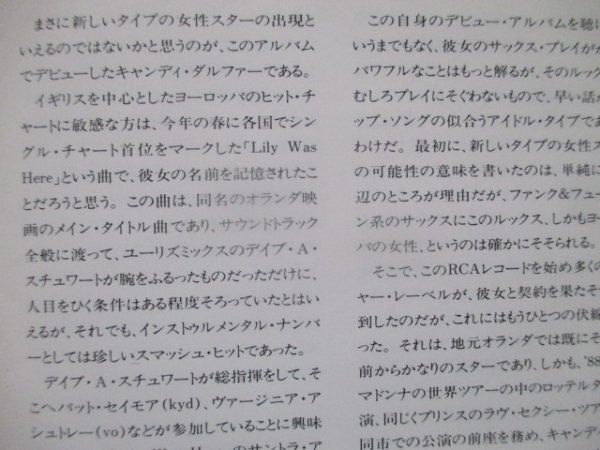 まさに新しいタイプの女性スターの出現と
いえるのではないかと思うのが、このアルバム
でデビューしたキャンディ・ダルファーである。
イギリスを中心としたヨーロッパのヒット・チ
ャートに敏感な方は、今年の春に各国でシン
グル・チャート首位をマークした「Lily Was
Here」という曲で、彼女の名前を記憶されたこ
とだろうと思う。この曲は、同名のオランダ映
画のメイン・タイトル曲であり、サウンドトラック
全般に渡って、ユーリズミックスのデイブ・A・
スチュワートが腕をふるったものだっただけに、
人目をひく条件はある程度そろっていたとはい
えるが、それでも、インストゥルメンタル・ナンバ
ーとしては珍しいスマッシュ・ヒットであった。
デイブ・A・スチュワートが総指揮をして、そ
こへパット・セイモア(kyd)、ヴァージニア・ア
シュトレー(vo)などが参加していることに興味
のサントラ・ア
この自身のデビュー・アルバムを聴に
いうまでもなく、彼女のサックス・プレイがか
パワフルなことはもっと解るが、そのルック
むしろプレイにそぐわないもので、早い話が
ップ・ソングの似合うアイドル・タイプであ
わけだ。最初に、新しいタイプの女性ス
の可能性の意味を書いたのは、単純に
辺のところが理由だが、ファンク&フュー
ン系のサックスにこのルックス、しかもヨー
パの女性、というのは確かにそそられる。
そこで、このRCAレコードを始め多くの
ャー・レーベルが、彼女と契約を果たそ
到したのだが、これにはもうひとつの伏線
った。それは、地元オランダでは既にそ
前からかなりのスターであり、しかも、'88
マドンナの世界ツアーの中のロッテルダ
演、同じくプリンスのラヴ・セクシー・ツア
同市での公演の前座を務め、キャンディ